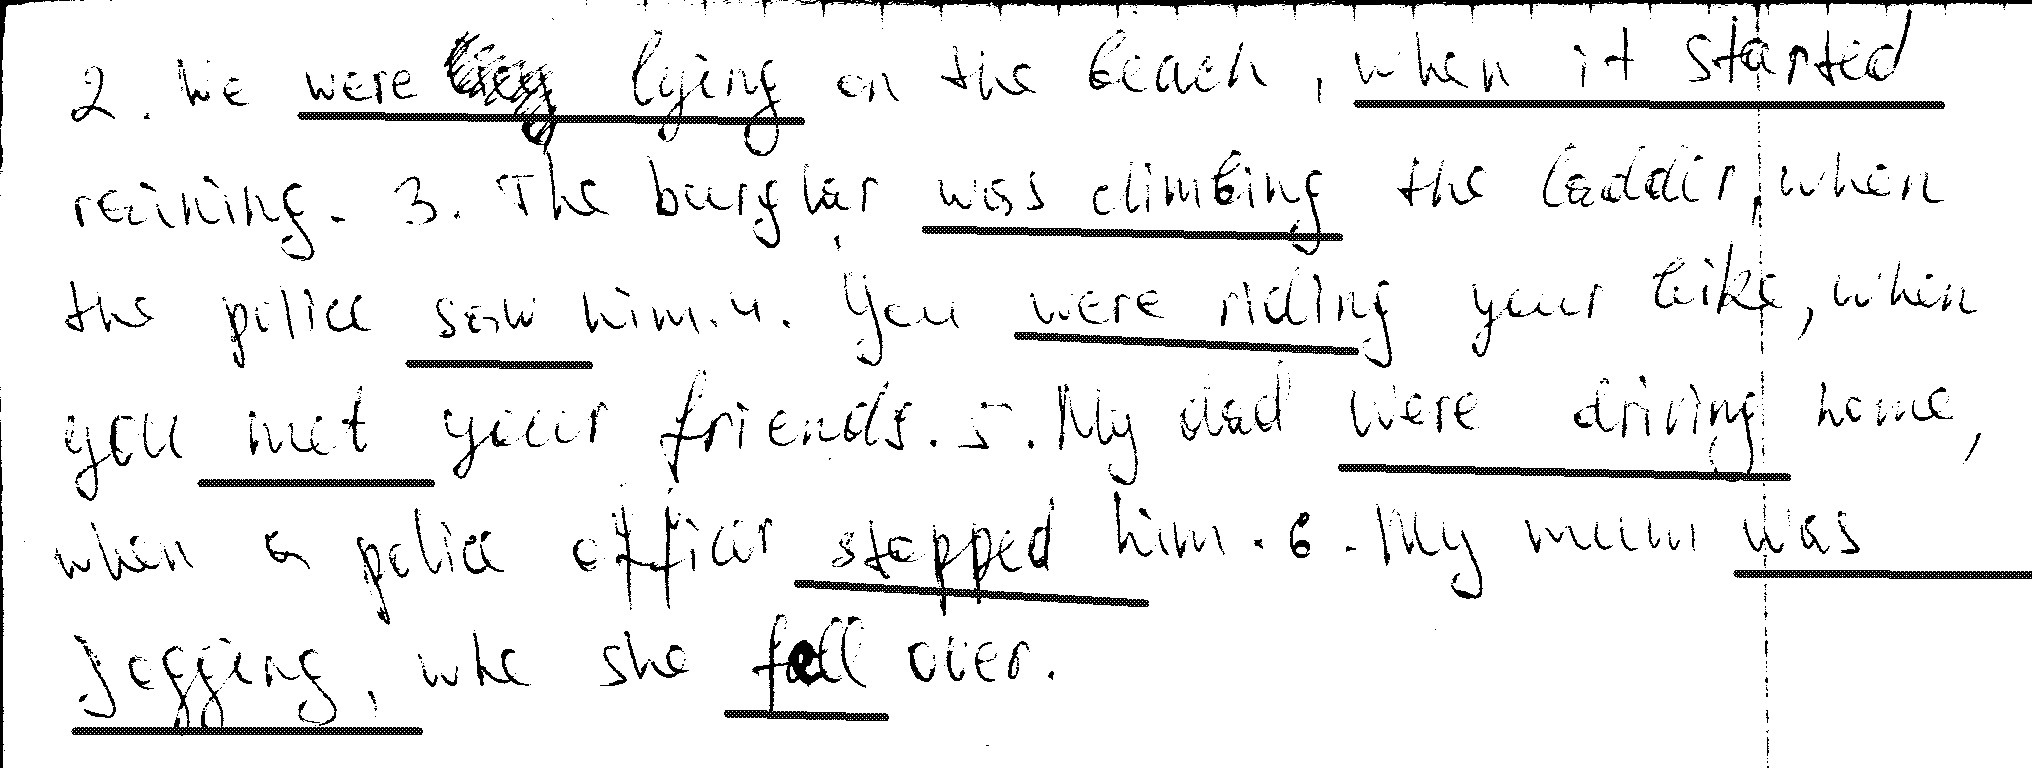 2. We were lying on the beach, when it started
reining. 3. The burglar was climbing the ladder, when
the police saw him. 4. You were riding your bike, when
you met your friends. 5. My dad were driving home,
when a police officer stopped him. 6. My mum was
Jogging, whe she fell over.